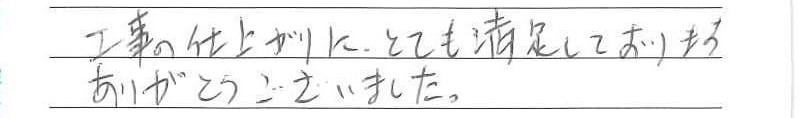 工事の仕上がりに、とても満足しております
ありがとうございました。